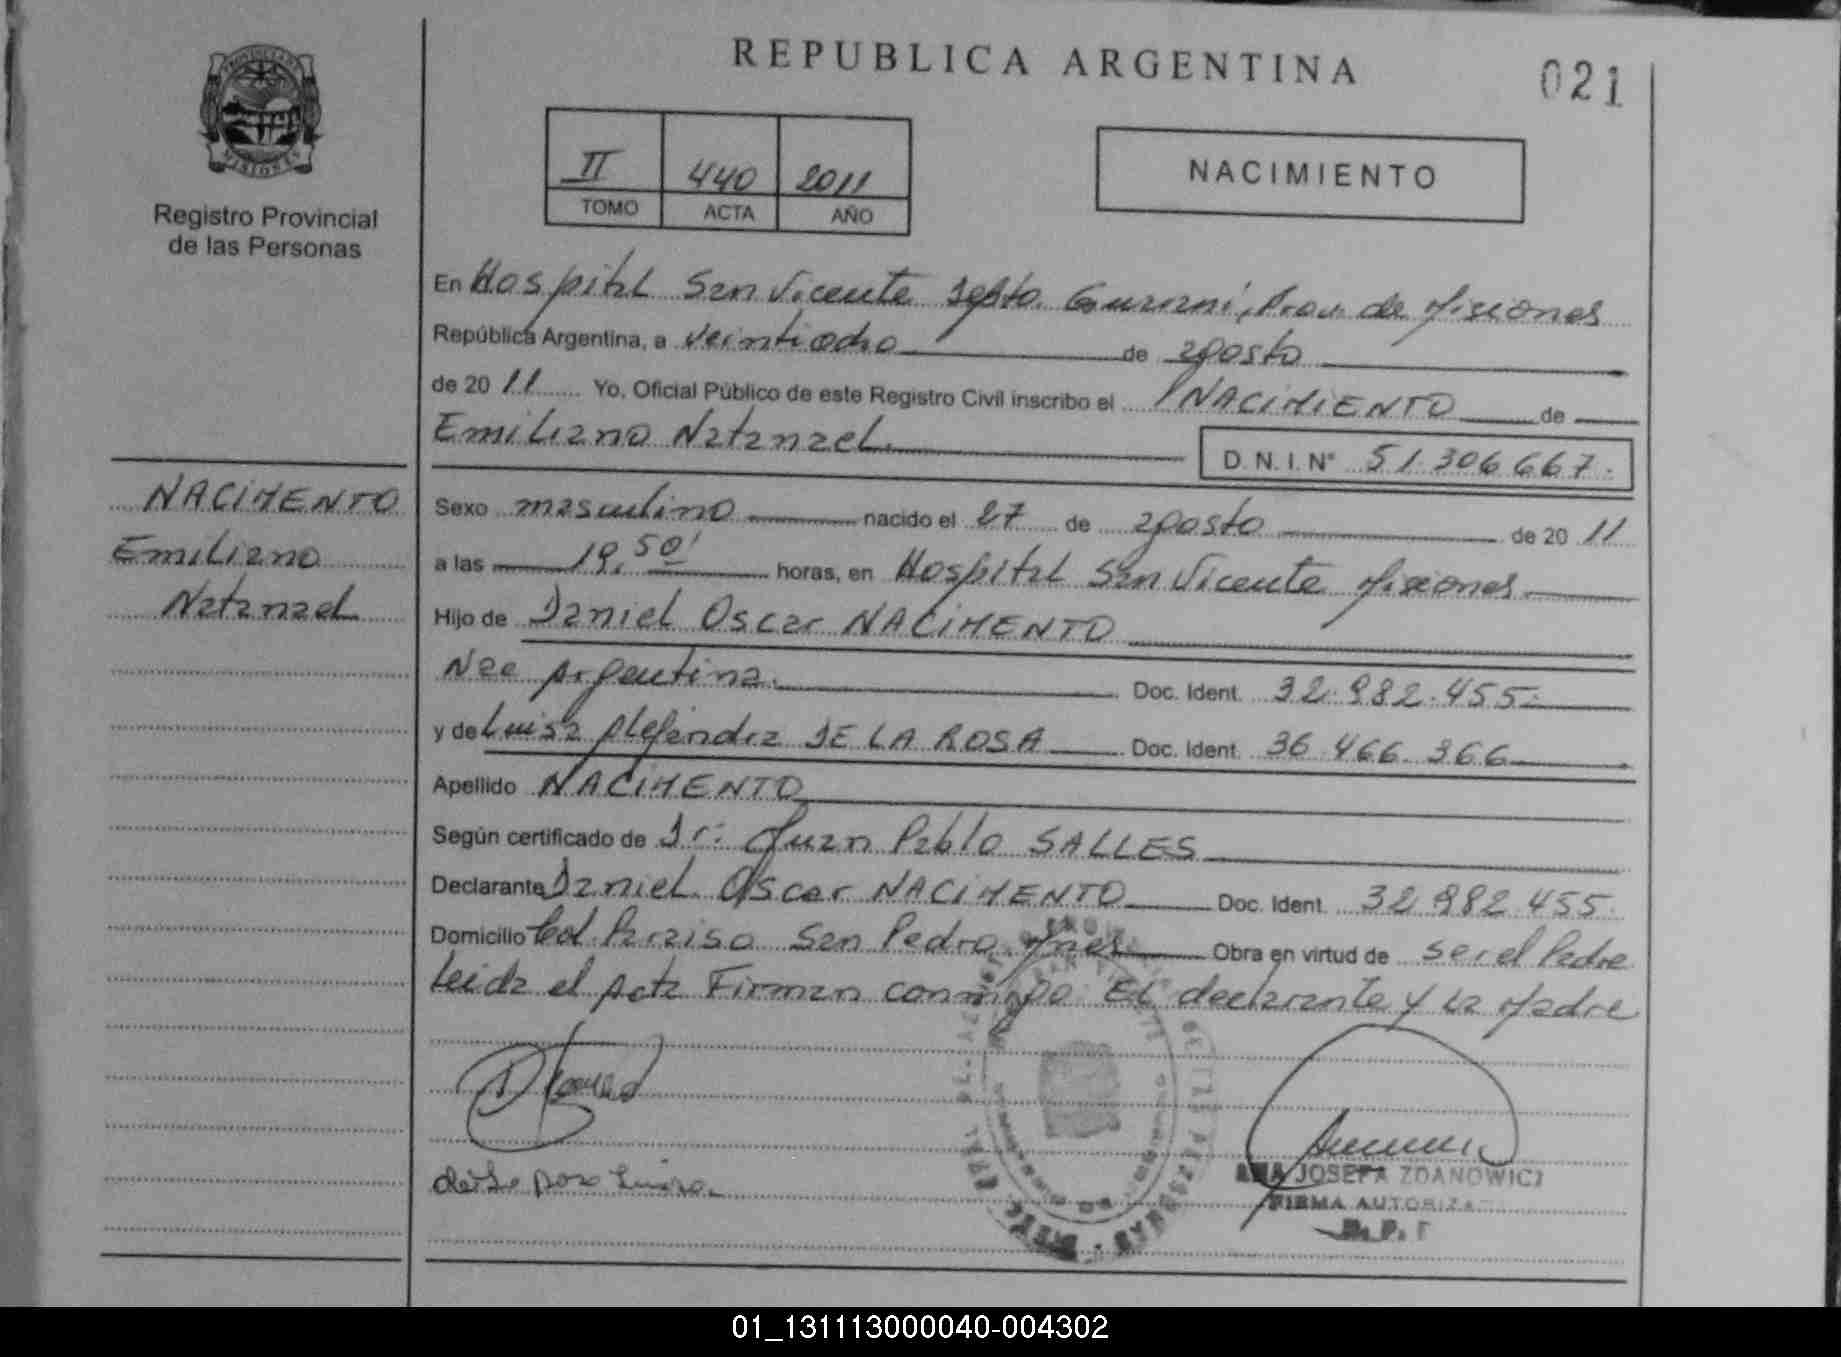 REPUBLICA ARGENTINA
021
PROVINCIA DE
MISIONES
Registro Provincial
de las Personas
II 440 2011
TOMO ACTA AÑO
NACIMIENTO
En Hospital San Vicente Depto. Guaraní, Prov. de Misiones
República Argentina, a veintiocho de agosto
de 20 11 Yo, Oficial Público de este Registro Civil inscribo el NACIMIENTO de
Emiliano Natanael
D.N.I. Nº 51.306.667.
NACIMENTO
Emiliano
Natanael
Sexo masculino nacido el 27 de agosto de 20 11
a las 19,50' horas, en Hospital San Vicente Misiones
Hijo de Daniel Oscar NACIMENTO
Nac Argentina. Doc. Ident. 32.982.455.
y de Luisa Alejandra DE LA ROSA Doc. Ident. 36.466.366
Apellido NACIMENTO
Según certificado de Dr: Juan Pablo SALLES
Declarante Daniel Oscar NACIMENTO Doc. Ident. 32.982.455.
Domicilio Col. Paraiso San Pedro Mnes Obra en virtud de ser el Padre
Leida el Acta Firman conmigo El declarante y La Madre
de la Rosa Luisa
ANA JOSEFA ZDANOWICZ
FIRMA AUTORIZA
01_131113000040-004302